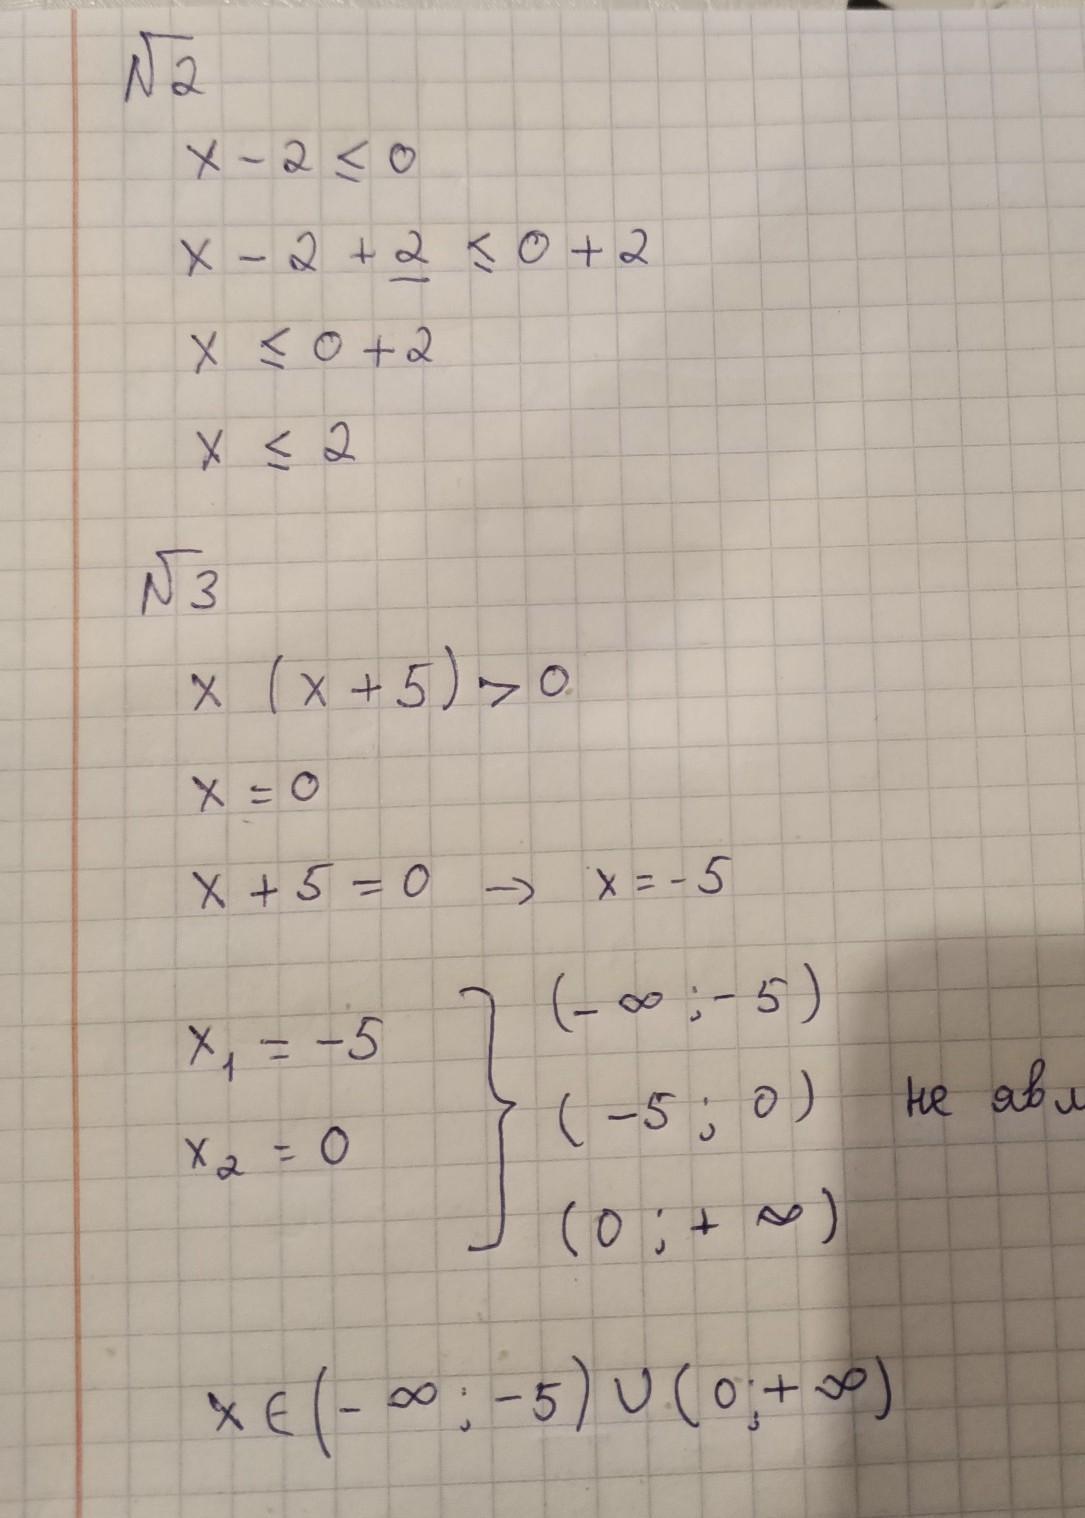 №2
x - 2 ≤ 0
x - 2 + 2 ≤ 0 + 2
x ≤ 0 + 2
x ≤ 2
№3
x (x + 5) > 0
x = 0
x + 5 = 0 → x = -5
x₁ = -5
x₂ = 0
(-∞ ; -5)
(-5 ; 0) не
(0 ; + ∞)
x ∈ (-∞ ; -5) ∪ (0 ; + ∞)